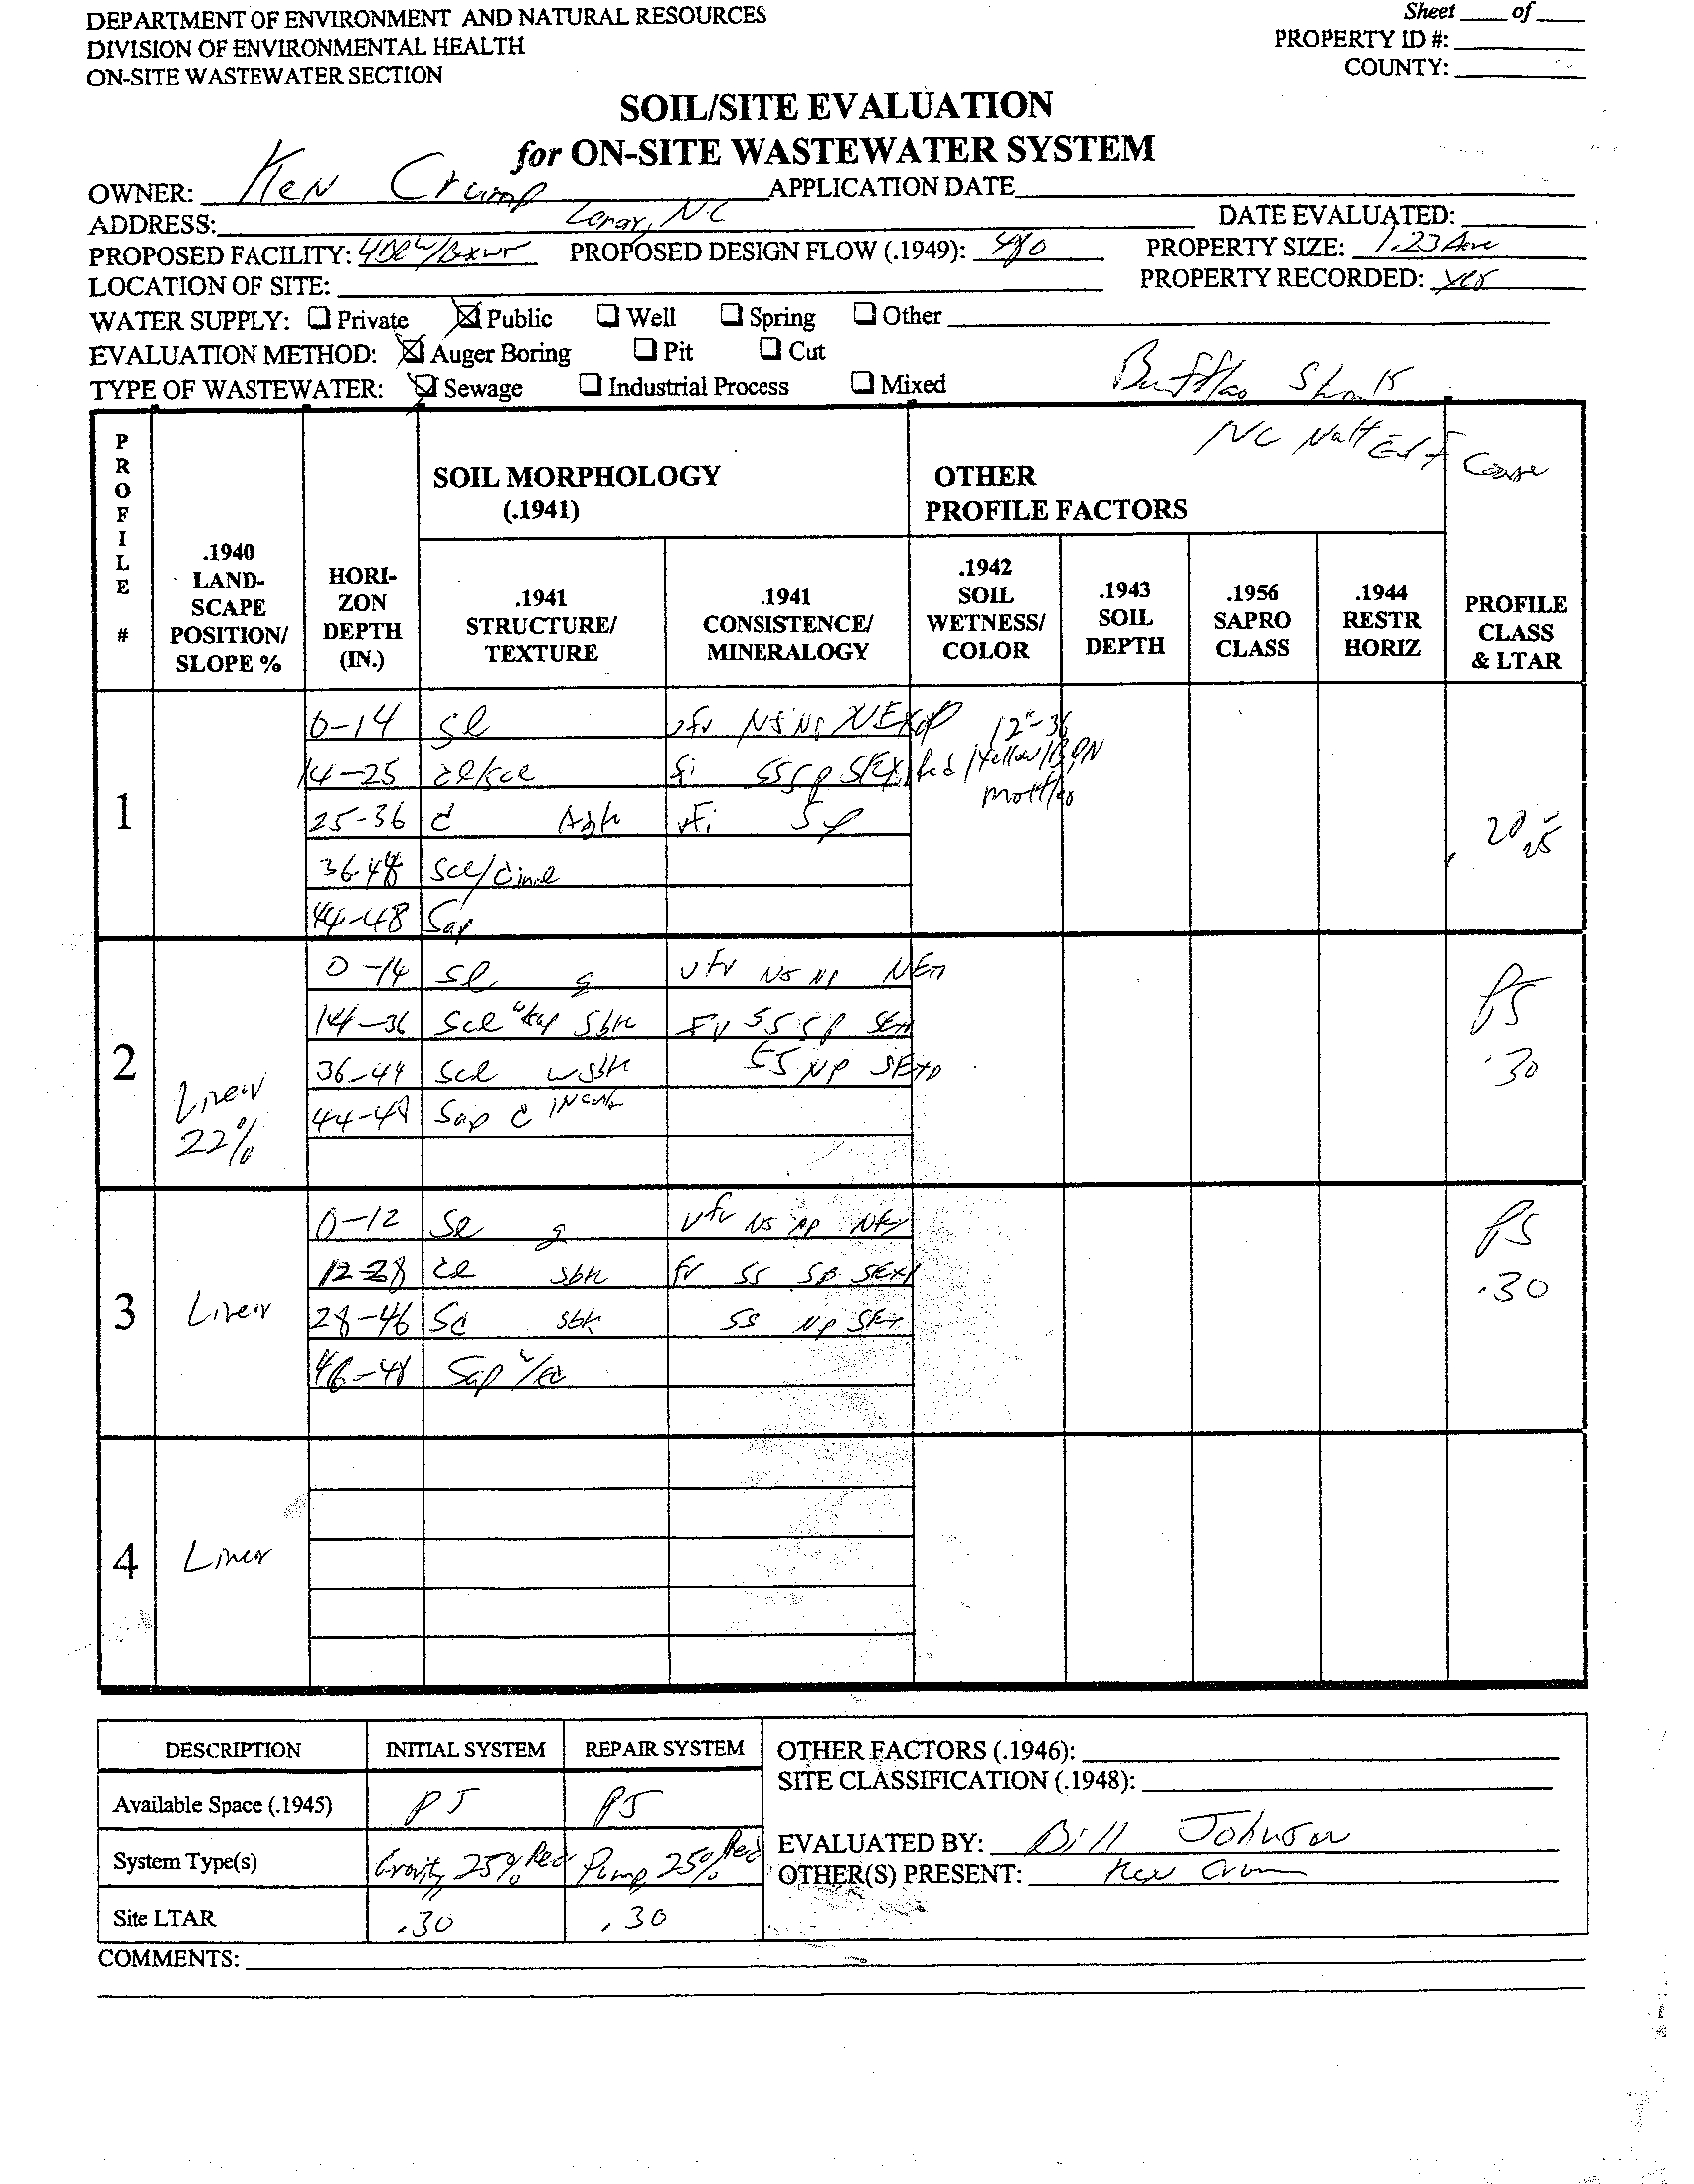 DEPARTMENT OF ENVIRONMENT AND NATURAL RESOURCES
DIVISION OF ENVIRONMENTAL HEALTH
ON-SITE WASTEWATER SECTION
Sheet ____ of ____
PROPERTY ID #:
COUNTY:
SOIL/SITE EVALUATION
for ON-SITE WASTEWATER SYSTEM
OWNER: Ken Crump APPLICATION DATE
ADDRESS: Lenoir, NC DATE EVALUATED:
PROPOSED FACILITY: PROPOSED DESIGN FLOW (.1949): 480 PROPERTY SIZE: 1.23 Acre
LOCATION OF SITE: PROPERTY RECORDED: yes
WATER SUPPLY: ☐ Private ☒ Public ☐ Well ☐ Spring ☐ Other
EVALUATION METHOD: ☒ Auger Boring ☐ Pit ☐ Cut
TYPE OF WASTEWATER: ☒ Sewage ☐ Industrial Process ☐ Mixed
NC
PROFILE #
.1940 LAND-SCAPE POSITION/ SLOPE %
HORI-ZON DEPTH (IN.)
SOIL MORPHOLOGY (.1941)
.1941 STRUCTURE/ TEXTURE
.1941 CONSISTENCE/ MINERALOGY
OTHER PROFILE FACTORS
.1942 SOIL WETNESS/ COLOR
.1943 SOIL DEPTH
.1956 SAPRO CLASS
.1944 RESTR HORIZ
PROFILE CLASS & LTAR
1
0-14 sl vfr NS NP NEXP 12"-36
14-25 cl/scl fi SS SP SEXP Red/Yellow/
mottles
25-36 c Abk vfi SP
36-48 scl/
44-48 Sap
2 Linear 22%
0-14 sl g vfr NS NP NEXP PS .30
14-36 scl sbk fr SS SP SEXP
36-44 scl wsbk SS NP SEXP
44-48 Sap c
3 Linear
0-12 sl g vfr NS NP NEXP PS .30
12-28 cl sbk fr SS SP SEXP
28-46 sc sbk SS NP SEXP
46-48 Sap
4 Linear
DESCRIPTION INITIAL SYSTEM REPAIR SYSTEM
Available Space (.1945) PS PS
System Type(s) Gravity 25% Red Pump 25% Red
Site LTAR .30 .30
OTHER FACTORS (.1946):
SITE CLASSIFICATION (.1948):
EVALUATED BY: Bill Johnson
OTHER(S) PRESENT: Ken Crump
COMMENTS: